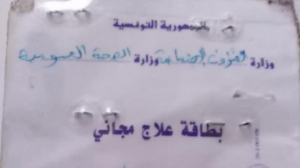 الجمهورية التونسية
وزارة الشؤون الاجتماعية وزارة الصحة العمومية
بطاقة علاج مجاني